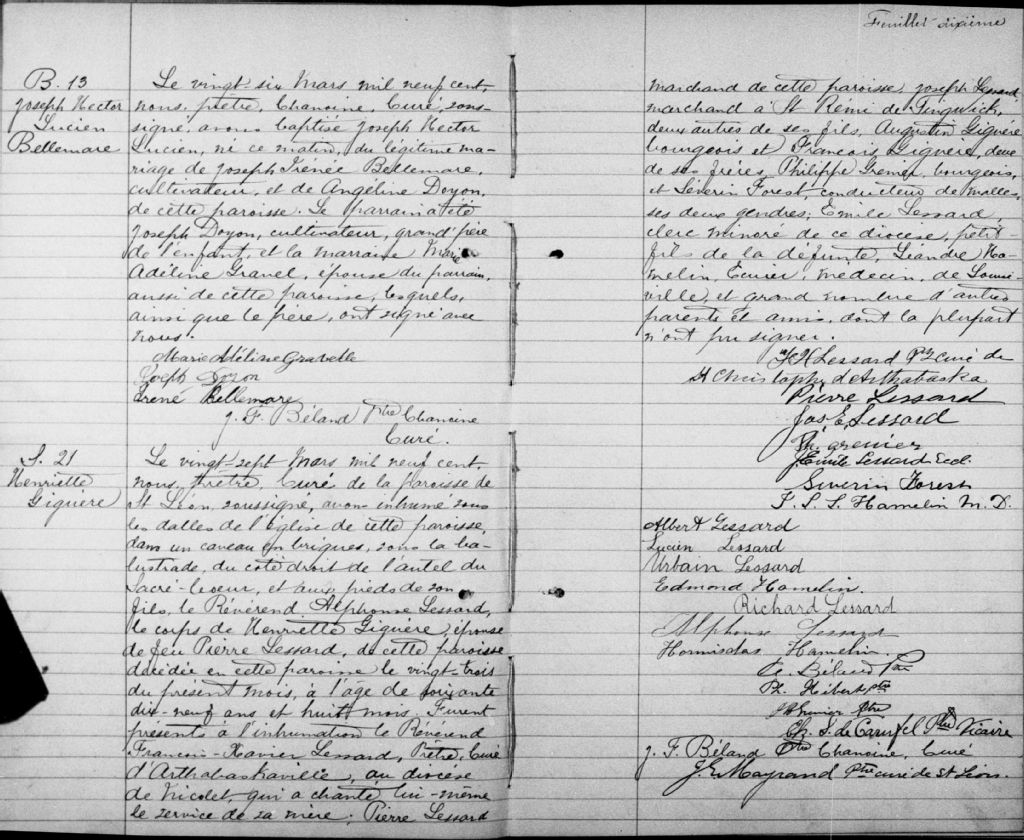 B. 13
Joseph Hector
Lucien
Bellemare
Le vingt-six Mars mil neuf cent,
nous, prêtre, Chanoine, Curé, sous-
signé, avons baptisé Joseph Hector
Lucien, né ce matin, du légitime ma-
riage de Joseph Irénée Bellemare,
cultivateur, et de Angéline Doyon,
de cette paroisse. Le parrain a été
Joseph Doyon, cultivateur, grand'père
de l'enfant, et la marraine Marie
Adéline Gravel, épouse du parrain,
aussi de cette paroisse, lesquels,
ainsi que le père, ont signé avec
nous.
Marie Adéline Gravelle
Joseph Doyon
Irené Bellemare
J. F. Béland Ptre Chanoine
Curé.
S. 21
Henriette
Giguère
Le vingt-sept Mars mil neuf cent,
nous, Prêtre, Curé de la paroisse de
St Léon, soussigné, avons inhumé sous
les dalles de l'église de cette paroisse,
dans un caveau en briques, sous la ba-
lustrade, du côté droit de l'autel du
Sacré-Coeur, et aux pieds de son
fils, le Révérend Alphonse Lessard,
le corps de Henriette Giguère, épouse
de feu Pierre Lessard, de cette paroisse
décédée en cette paroisse le vingt-trois
du présent mois, à l'âge de soixante
dix-neuf ans et huit mois. Furent
présents à l'inhumation le Révérend
François-Xavier Lessard, Prêtre, Curé
d'Arthabaskaville, au diocèse
de Nicolet, qui a chanté lui-même
le service de sa mère; Pierre Lessard
Feuillet dixième
marchand de cette paroisse, Joseph Lessard
marchand à St Rémi de Tingwick,
deux autres de ses fils, Augustin Giguère
bourgeois et François Giguère, deux
de ses frères, Philippe Grenier, bourgeois,
et Séverin Forest, conducteur de malles,
ses deux gendres; Emile Lessard,
clerc minoré de ce diocèse, petit-
fils de la défunte, Léandre Ha-
melin, Ecuier, médecin, de Louise-
ville, et grand nombre d'autres
parents et amis, dont la plupart
n'ont pu signer.
Lessard Ptre curé de
St Christophe d'Arthabaska
Pierre Lessard
Jos E. Lessard
Ph. grenier
J. Emile Lessard Eccl.
Severin Forest
F. L. L. Hamelin M. D.
Albert Lessard
Lucien Lessard
Urbain Lessard
Edmond Hamelin.
Richard Lessard
Alphonse Lessard
Hormisdas Hamelin.
A. Béland Ptre
Ph. Hébert ptre
Grenier Ptre
Ch. S. de Carufel Ptre Vicaire
J. F. Béland Ptre Chanoine, Curé
J. E. Mayrand Ptre curé de St Léon.